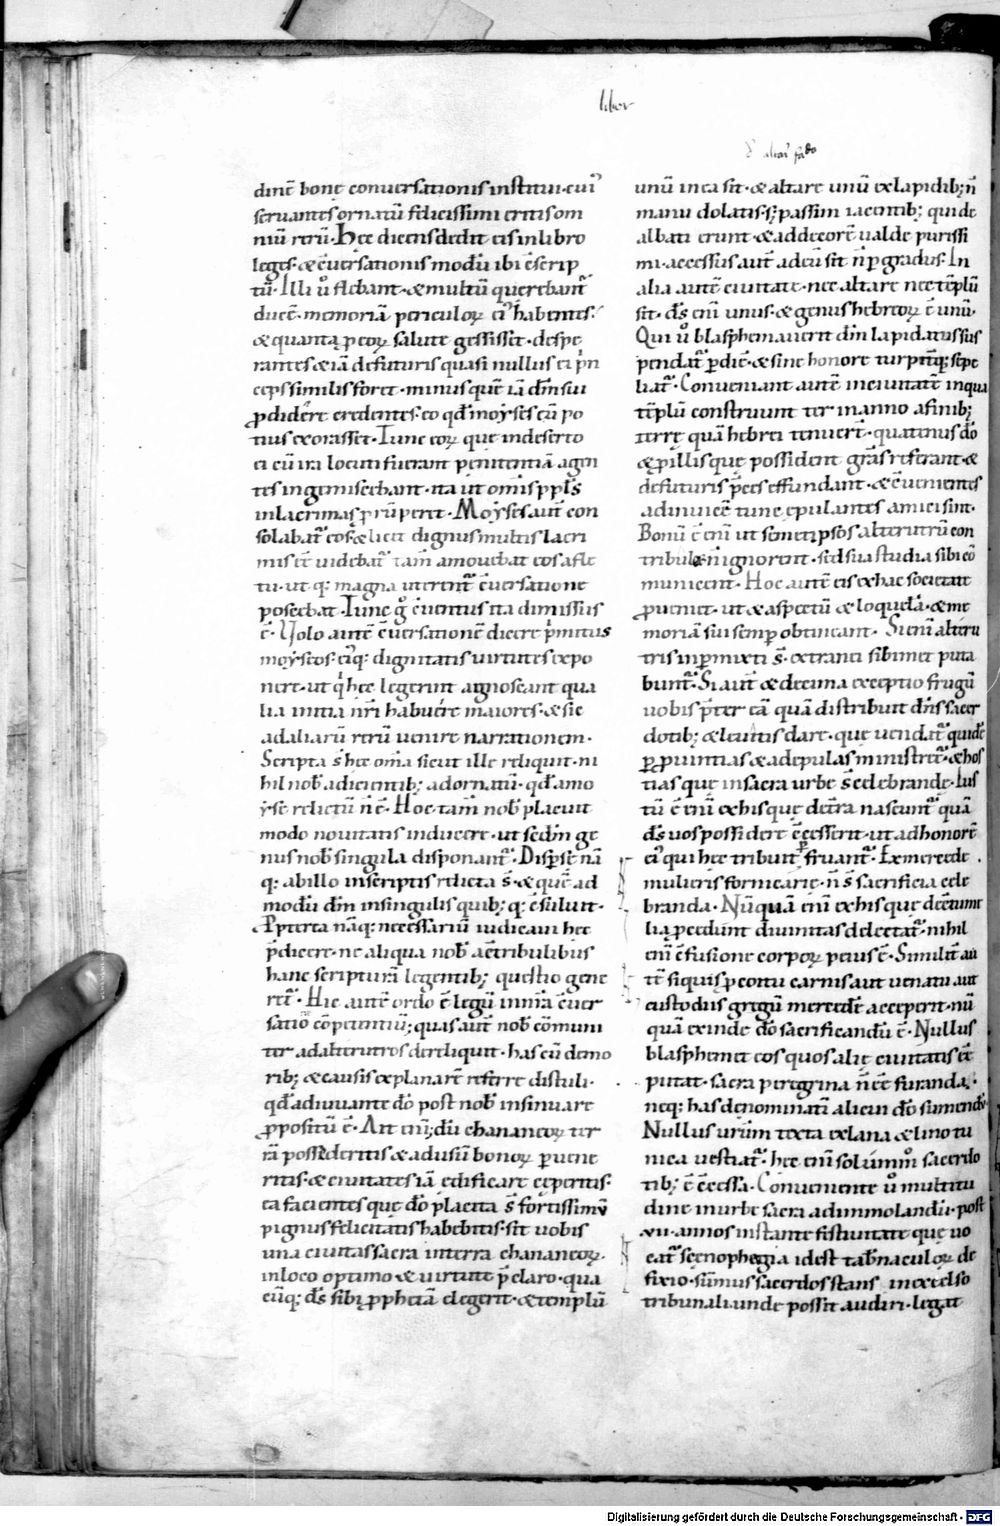 liber
dinē bonę conuersationis institui. cui᾽
seruantes ornatū felicissimi eritis om
niū rerū. Hęc dicens dedit eis in libro
leges. & c̄uersationis modū ibi c̄scrip
tū. Illi ū flebant. & multū querebant᷑
ducē. memoriā periculoꝝ ei᾽ habentes.
& quanta ꝓ eoꝝ salute gessisset. despe
rantes & iā de futuris quasi nullus ei p̄n
ceps similis foret. minusquē iā dm̄ sui
ꝓ didere credentes. eo qd̄ moyses cū po
tius exorasset. Tunc eoꝝ quę in deserto
ei cū ira locuti fuerant penitentiā agen
tes ingemiscebant. ita ut om̄is ppl̄s
in lacrimas prūperet. Moyses aut̄ con
solabat᷑ eos. & licet dignus multis lacri
mis ēē uidebat᷑ tam̄ amouebat eos a fle
tu. ut q; magna uterent᷑ c̄uersatione
poscebat. Tunc g̊ c̄uentus ita dimissus
ē. Uolo autē c̄uersationē dicere p̄mitus
moyseos. ei᾽q; dignitatis uirtutes expo
nere. ut q̇ hęc legerint agnoscant qua
lia initia nr̄i habuere maiores. & sic
ad aliarū rerū uenire narrationem.
Scripta s̄ hęc om̄a sicut ille reliquit. ni
hil nob̄ adicientib; ad ornatū. qd̄ a mo
yse relictū n̄ ē. Hoc tam̄ nob̄ placuit
modo nouitatis inducere. ut sedm̄ ge
nus nob̄ singula disponant᷑. Dispersē nā
q; ab illo in scriptis relicta s̄. & quē ad
modū dm̄ in singulis quib; q; c̄suluit.
Ꝓpterea nāq; necessariū iudicaui hęc
p̄dicere. ne aliqua nob̄ a c̄tribulibus
hanc scripturā legentib; questio gene
ret᷑. Hic autē ordo ē legū in nr̄a c̄uer
satio c̄petentiū; quas aut̄ nob̄ c̄muni
ter ad alterutros dereliquit. has cū de mo
rib; & causis explanarē referre distuli.
qd̄ adiuuante dō post nob̄ insinuare
ꝓpositū ē. Ait enī; dū chananeoꝝ ter
rā possederitis & ad usū bonoꝝ puene
ritis. & ciuitates iā edificare ceperitis.
ea facientes quę dō placita s̄ fortissimū
pignus felicitatis habebitis. sit uobis
una ciuitas sacra in terra chananeoꝝ.
in loco optimo & uirtute p̄claro. qua
cūq; ds̄ sibi ꝓphetiā elegerit. & templū
unū in ea sit. & altare unū ex lapidib; n̄
manu dolatis. s; passim iacentib; qui de
albati erunt. & ad decorē ualde purissi
mi. accessus aut̄ ad eū sit n̄ p gradus. In
alia autē ciuitate. nec altare nec tēplū
sit. ds̄ enī unus. & genus hebreoꝝ ē unū.
Qui ū blasphemauerit dm̄ lapidatus sus
pendat᷑ p diē. & sine honore turpit̄q; sepe
liat᷑. Conueniant autē in ciuitatē in qua
tēplū construunt ter in anno a finib;
terrę quā hebrei tenuert̄. quatenus dō
& p illis quę possident grās referant &
de futuris p̄ces effundant. & c̄uenientes
ad inuicē tunc epulantes amici sint.
Bonū ē enī ut semetipsos alterutrū con
tribules n̄ ignorent. sed sua studia sibi cō
municent. Hoc autē eis ex hac societate
ꝓueniet. ut & aspectū & loquelā. & me
moriā sui semp obtineant. Si enī alteru
tris inpmixti s̄. extranei sibimet puta
bunt᷑. Si aut̄ & decima exceptio frugū
uobis p̄ter eā quā distribuit dn̄s sacer
dotib; & leuitis dare. quę uendat᷑ quidē
ꝑ ꝓuintias & ad epulas ministret᷑. & hos
tias quę in sacra urbe s̄ celebrandę. Ius
tū ē enī ex his quę de tr̄a nascunt᷑ quā
ds̄ uos possidere c̄cesserit. ut ad honorē
ei᾽ qui hęc tribuit pfruant᷑. Ex mercede
mulieris fornicarię. n̄ s̄ sacrificia cele
branda. Nūquā enī ex his quę de crimine
lia p cedunt diuinitas delectat᷑. nihil
enī c̄fusione corpoꝝ peius ē. Similit̄ au
tē siquis p coitu carnis aut uenatu aut
custodus gregū mercedē acceperit. nū
quā exinde dō sacrificandū ē. Nullus
blasphemet eos quos alię ciuitatis ēē
putat. sacra peregrina n̄ ēē furanda.
neq; has denominati alicui dō sumendū.
Nullus urūm texta ex lana & lino tu
nica uestiat᷑. hęc enī solum̄m sacerdo
tib; ē c̄cessa. Conueniente ū multitu
dine in urbe sacra ad immolandū. post
.vii. annos instante festiuitate quę uo
cat᷑ scenophegia id est tab̄naculoꝝ de
fixio. sūmus sacerdos stans in excelso
tribunali unde possit audiri. legat